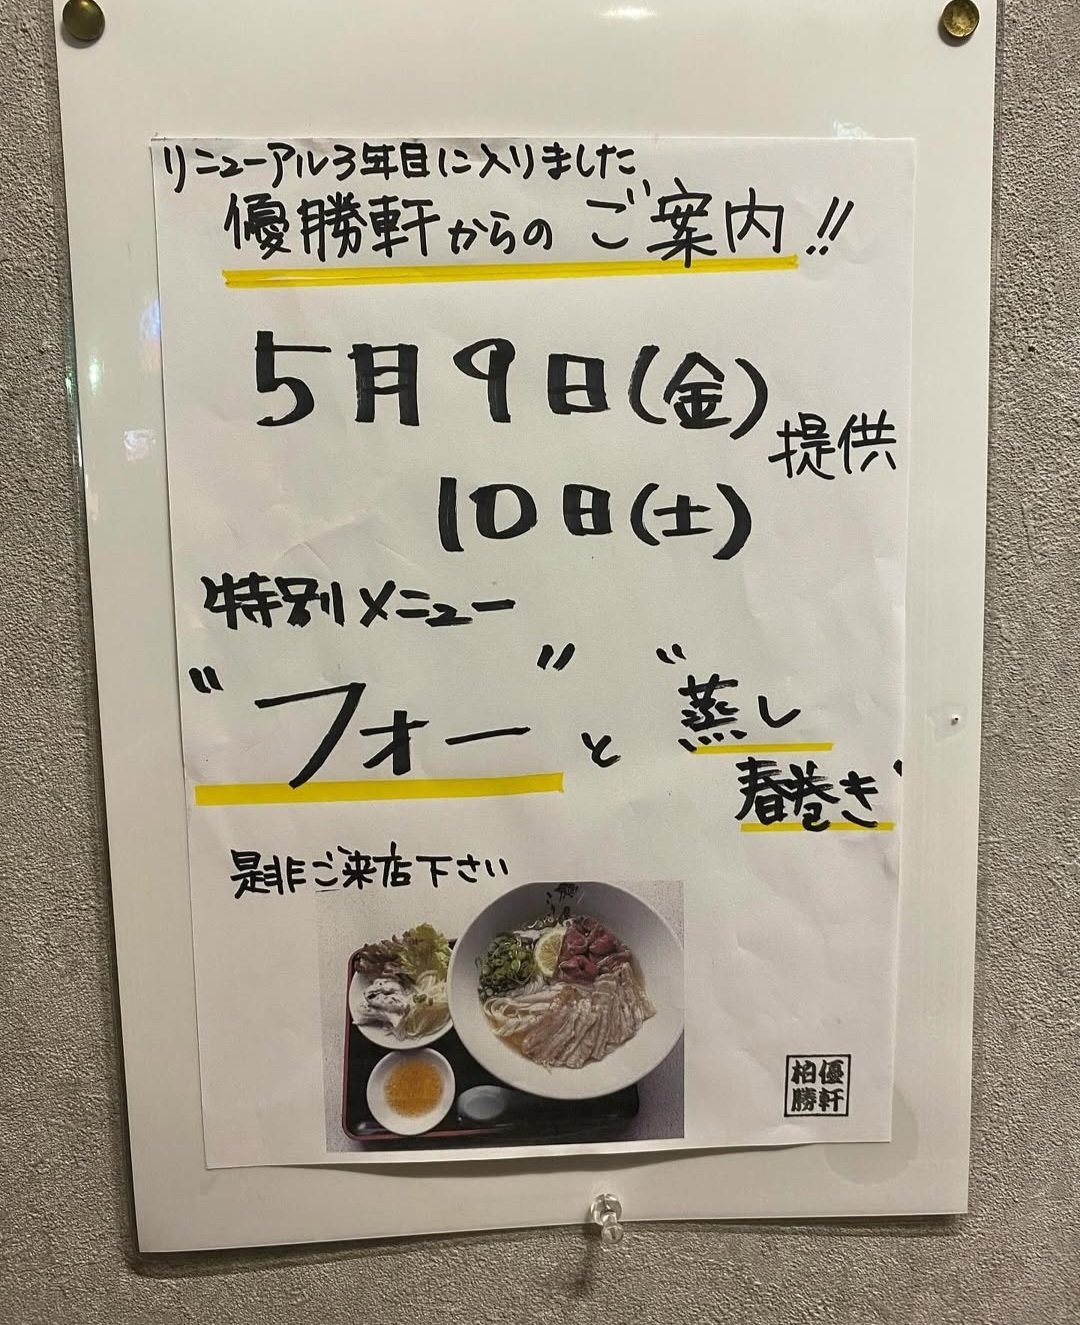 リニューアル3年目に入りました
優勝軒からのご案内!!
5月9日(金)
提供
10日(土)
特別メニュー
"フォー"と"蒸し
春巻き"
是非ご来店下さい
柏優
勝軒